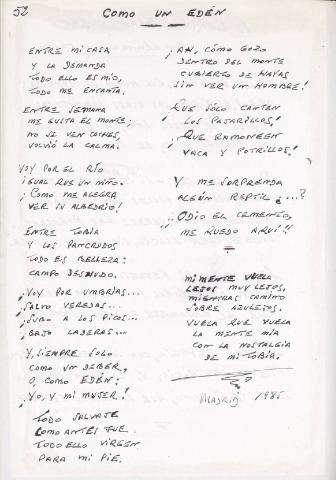 52
COMO UN EDÉN
ENTRE MI CASA
Y LA DEMANDA
TODO ELLO ES MIO,
TODO ME ENCANTA.
ENTRE SEMANA
ME GUSTA EL MONTE;
NO SE VEN COCHES,
VOLVIÓ LA CALMA.
VOY POR EL RÍO
IGUAL QUE UN NIÑO.
¡COMO ME ALEGRA
VER SU ALBEDRIO!
ENTRE TOBÍA
Y LOS PANCRUDOS
TODO ES BELLEZA:
CAMPO DESNUDO.
¡VOY POR UMBRÍAS...
¡SALVO VEREDAS...
¡SUBO A LOS PICOS...
¡BAJO LADERAS...
Y, SIEMPRE SOLO
COMO UN DEBER,
O, COMO EDÉN:
¡YO, Y MI MUJER!
TODO SALVAJE
COMO ANTES FUE.
TODO ELLO VIRGEN
PARA MI PIE.
¡AH, CÓMO GOZO
DENTRO DEL MONTE
CUBIERTO DE HAYAS
SIN VER UN HOMBRE!
QUE SÓLO CANTEN
¡LOS PAJARILLOS!
¡QUE RAMONEEN
VACA Y POTRILLOS!
Y ME SORPRENDA
ALGÚN REPTIL ¿...?
¡ODIO EL CEMENTO,
ME QUEDO AQUÍ!!
MI MENTE VUELA
LEJOS MUY LEJOS,
MIENTRAS CAMINO
SOBRE AZULEJOS.
VUELA QUE VUELA
LA MENTE MÍA
CON LA NOSTALGIA
DE MI TOBÍA.
MADRID 1985